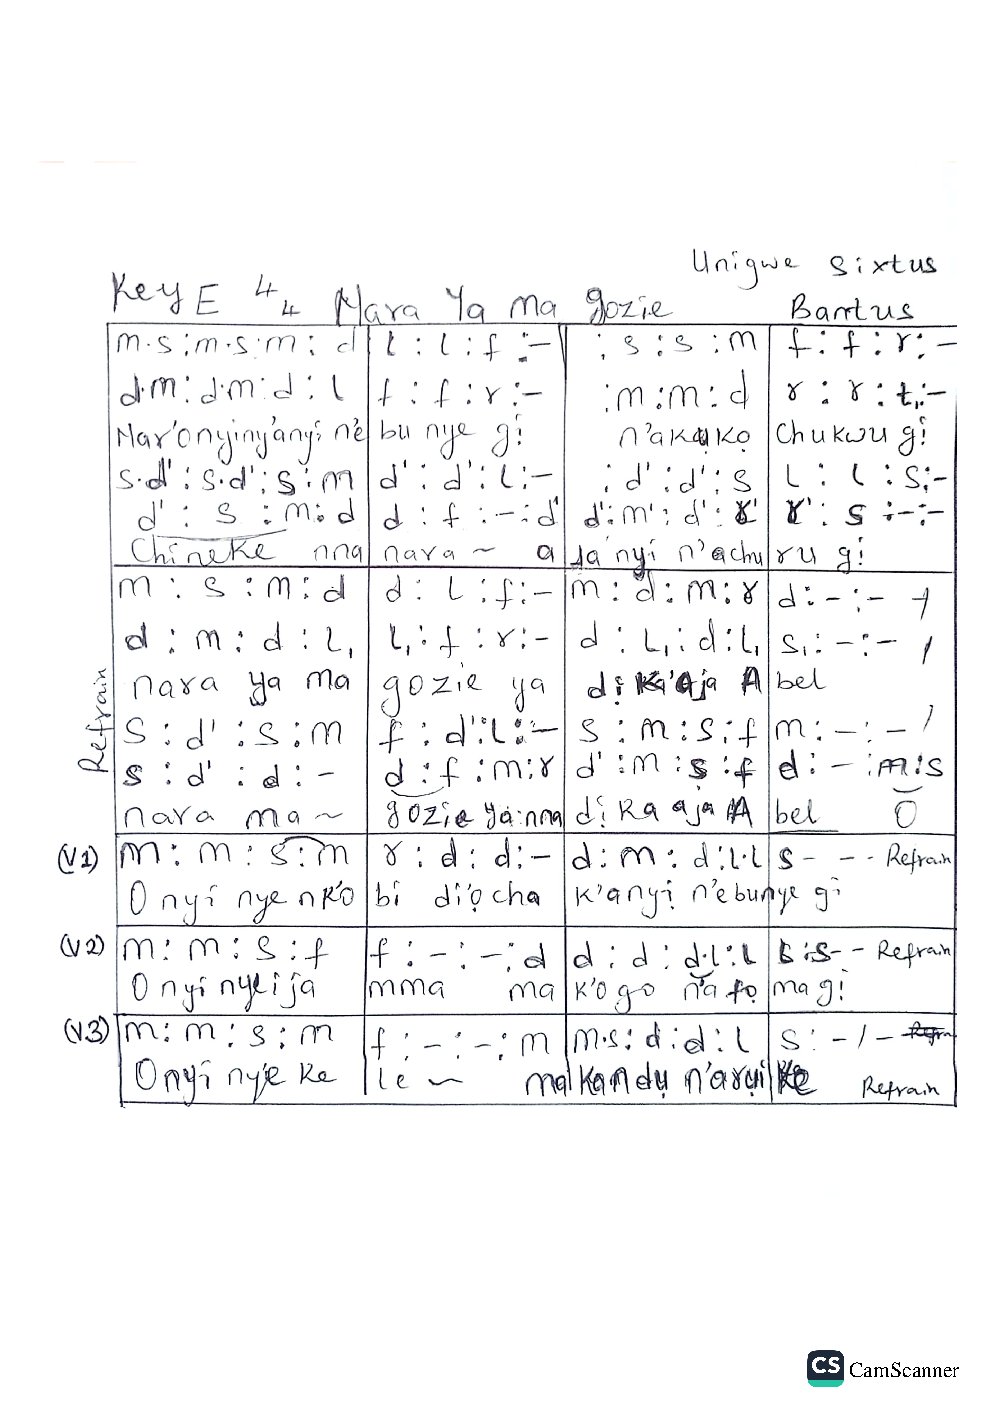 Unigwe Sixtus
Key E 4/4 Nara Ya ma gozie Bantus
m.s:m.s:m: d | l : l : f :- | : s : s : m | f : f : r : -
d.m:d.m:d:l | f : f : r :- | :m:m:d | r : r : t,:-
Nar'onyinyanyi n'e bu nye gị n'akụkọ Chukwu gị
s.d':s.d':s:m | d' : d' : l:- | : d' : d' : s | l : l : s:-
d' : s : m:d | d : f : - : d' | d':m':d':r' | r' : s :-:-
Chineke nna nara ~ a ja'nyi n'achu ru gị
m : s : m:d | d : l : f:- | m : d:m:r | d:-:- /
d : m : d : l, | l,: f : r :- | d : l,: d:l, | s, : - : - /
nara ya ma gozie ya dị ka'aja A bel
Refrain
s : d' : s : m | f : d':l:- | s : m : s : f | m : - : - /
s : d' : d : - | d : f : m:r | d':m : s : f | d : - :m:s
nara ma ~ gozie ya nna dị ka aja A bel O
(V1) m : m : s : m | r : d : d:- | d : m : d:l.l | s - - - Refrain
O nyi nye nk'o bi dị'ọcha k'anyị n'ebunye gị
(V2) m: m : s : f | f : - : - : d | d : d : d.l : l | l:s-- Refrain
O nyi nye ija mma ma k'o go n'afọ ma gị
(V3) m: m : s : m | f : - : - : m | m.s: d : d : l | s : - / -
O nyi nye ke le ~ ma kandụ n'arụị ke Refrain
CS CamScanner